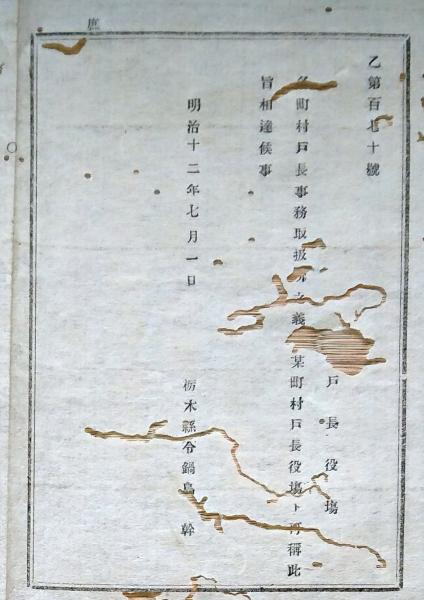 庶
乙第百七十號
戸長役塲
各町村戸長事務取扱所之義某町村戸長役塲ト可稱此
旨相達候事
明治十二年七月一日
栃木縣令鍋島幹